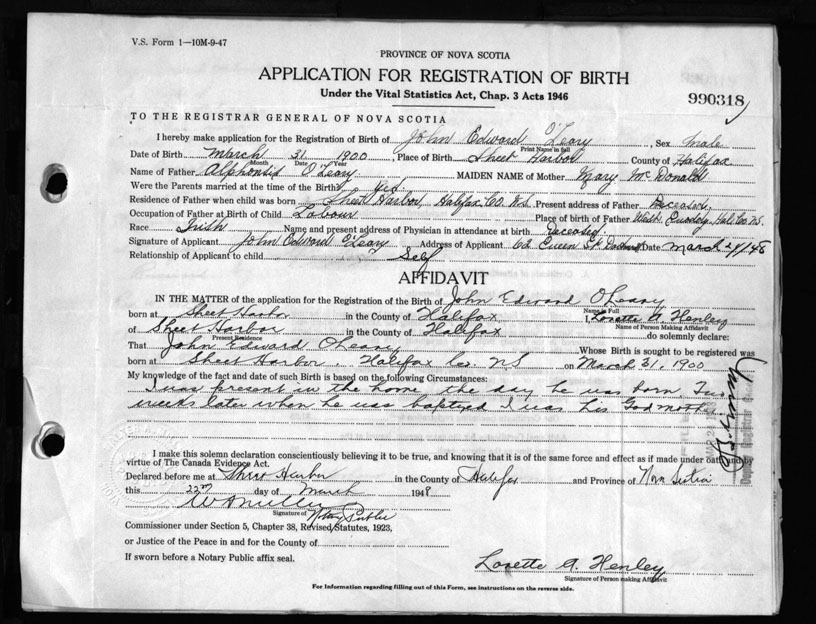 V.S. Form 1—10M-9-47
PROVINCE OF NOVA SCOTIA
APPLICATION FOR REGISTRATION OF BIRTH
Under the Vital Statistics Act, Chap. 3 Acts 1946
990318
TO THE REGISTRAR GENERAL OF NOVA SCOTIA
I hereby make application for the Registration of Birth of John Edward O'Leary, Sex male
Print Name in full
Date of Birth March 31 1900, Place of Birth Sheet Harbor County of Halifax
Month Date Year
Name of Father Alphonsis O'Leary MAIDEN NAME of Mother Mary McDonald
Were the Parents married at the time of the Birth? yes
Residence of Father when child was born Sheet Harbor, Halifax Co. N.S. Present address of Father Deceased.
Occupation of Father at Birth of Child Labour Place of birth of Father West Hali Co. N.S.
Race Irish Name and present address of Physician in attendance at birth Deceased.
Signature of Applicant John Edward O'Leary Address of Applicant 62 Queen St. Date March 24/48
Relationship of Applicant to child Self
AFFIDAVIT
IN THE MATTER of the application for the Registration of the Birth of John Edward O'Leary
Name in Full
born at Sheet Harbor in the County of Halifax I, Lorette A. Henley
Name of Person Making Affidavit
of Sheet Harbor in the County of Halifax do solemnly declare:
Present Residence
That John Edward O'Leary Whose Birth is sought to be registered was
born at Sheet Harbor, Halifax Co. NS on March 31, 1900
My knowledge of the fact and date of such Birth is based on the following Circumstances:
I was present in the home the day he was born. Two
weeks later when he was baptized I was his God mother.
I make this solemn declaration conscientiously believing it to be true, and knowing that it is of the same force and effect as if made under oath and by
virtue of The Canada Evidence Act.
Declared before me at Sheet Harbor in the County of Halifax and Province of Nova Scotia
this 22nd day of March 1948
Signature of Notary Public
Commissioner under Section 5, Chapter 38, Revised Statutes, 1923,
or Justice of the Peace in and for the County of
If sworn before a Notary Public affix seal.
Lorette A. Henley
Signature of Person making Affidavit
For Information regarding filling out of this Form, see instructions on the reverse side.